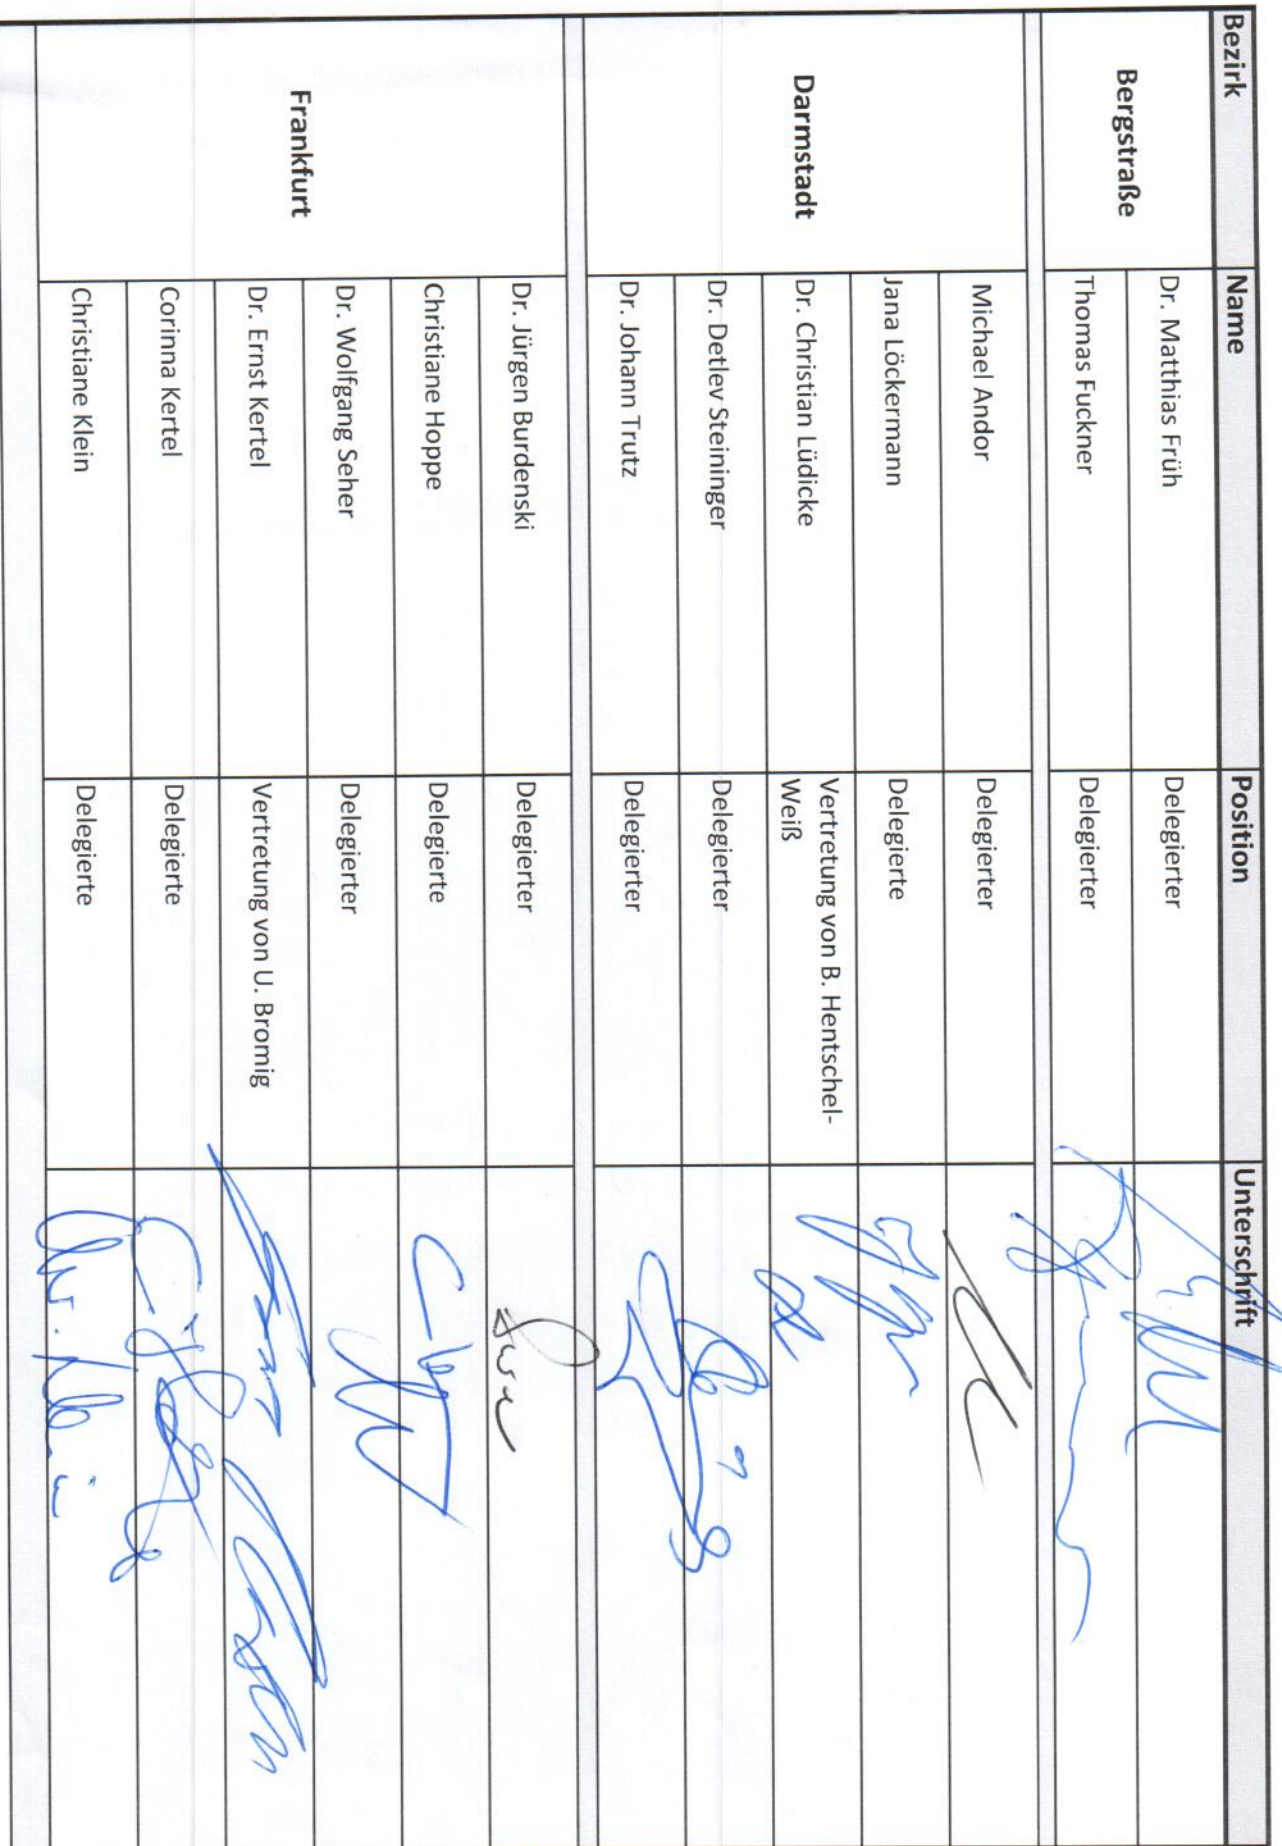 Bezirk Name Position Unterschrift
Bergstraße
Dr. Matthias Früh Delegierter
Thomas Fuckner Delegierter
Darmstadt
Michael Andor Delegierter
Jana Löckermann Delegierte
Dr. Christian Lüdicke Vertretung von B. Hentschel-
Weiß
Dr. Detlev Steininger Delegierter
Dr. Johann Trutz Delegierter
Frankfurt
Dr. Jürgen Burdenski Delegierter
Christiane Hoppe Delegierte
Dr. Wolfgang Seher Delegierter
Dr. Ernst Kertel Vertretung von U. Bromig
Corinna Kertel Delegierte
Christiane Klein Delegierte Chr. Klein